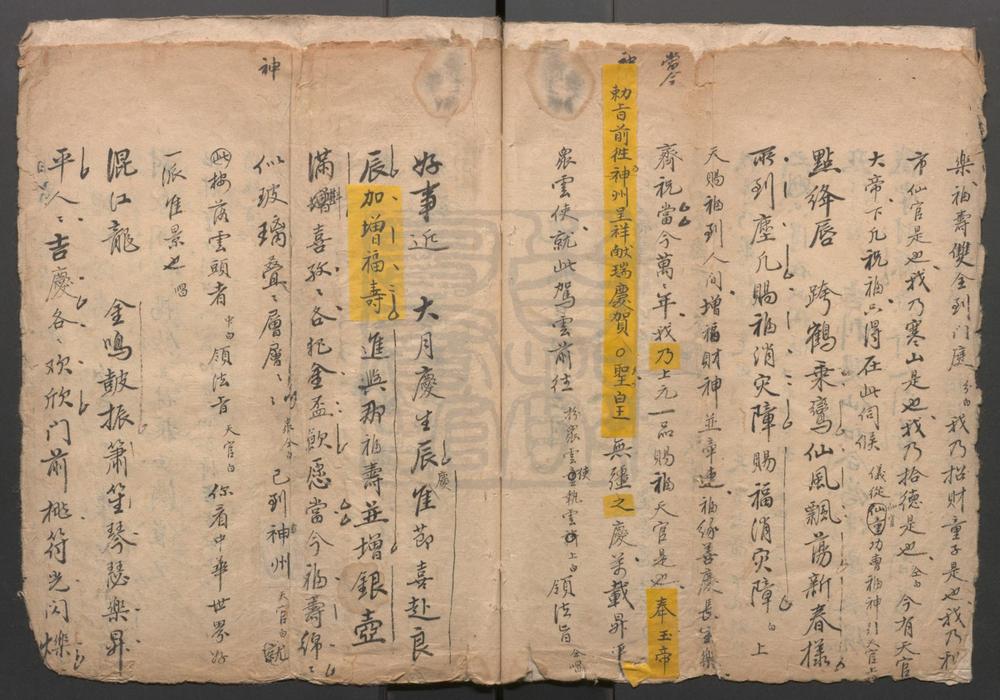 樂福壽雙全到门庭 分白 我乃招财童子是也我乃利
市仙官是也我乃寒山是也我乃拾德是也 仝白 今有天官
大帝下凡祝福只得在此伺候 儀從仙官功曹福神引天官上
點絳唇 跨鶴乘鸞仙風飄荡新春樣
所到塵凡赐福消灾障賜福消灾障 白 上
天賜福到人间增福財神並帝連福缘善慶長生樂
齊祝當今萬〻年我乃上元一品賜福天官是也奉玉帝
當今
神
勅旨前徃神州呈祥献瑞慶賀○聖皇無疆之慶萬載昇平
衆雲使就此駕雲前往 扮衆雲使執雲上白 領法旨 仝唱
好事近 大月慶生辰准莭喜赴良
慶
辰加增福壽進與那福壽並增銀壺
滿斟喜孜〻各把金盃飲愿當今福壽綿〻
神
似玻璃叠〻層層〻 衆仝白 已到神州 天官白 就
此按落雲頭者 中白 領法旨 天官白 你看中華世界好
一派惟景也 唱
混江龍 金鳴鼓振簫笙琴瑟樂昇
平人〻吉慶各〻欢欣门前桃符光闪爍